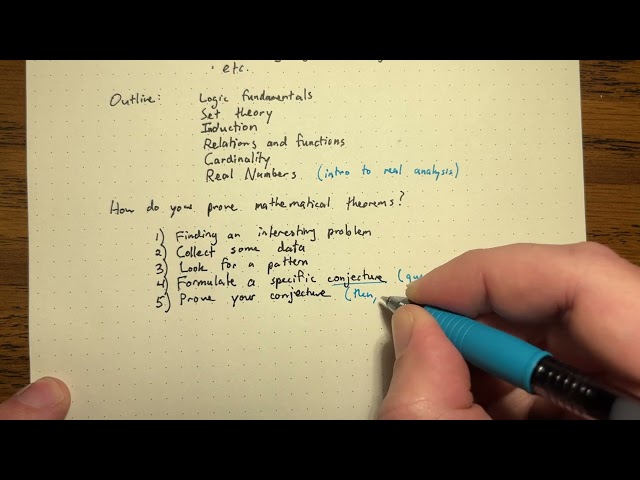 · etc.
Outline: Logic fundamentals
Set theory
Induction
Relations and functions
Cardinality
Real Numbers (intro to real analysis)
How do you prove mathematical theorems?
1) Finding an interesting problem
2) Collect some data
3) Look for a pattern
4) Formulate a specific conjecture
5) Prove your conjecture (then,